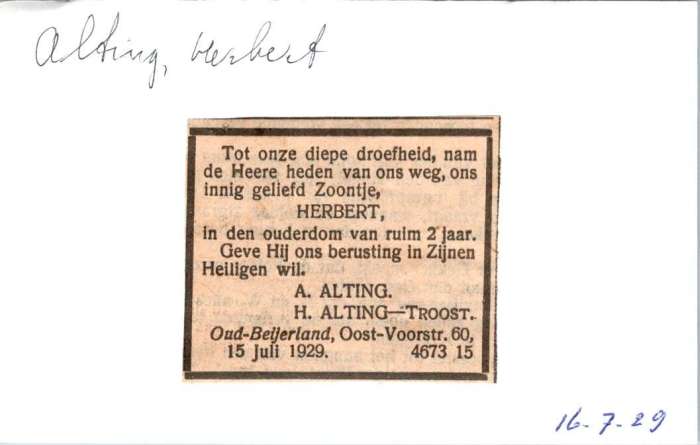 Alting, Herbert
Tot onze diepe droefheid, nam
de Heere heden van ons weg, ons
innig geliefd Zoontje,
HERBERT,
in den ouderdom van ruim 2 jaar.
Geve Hij ons berusting in Zijnen
Heiligen wil.
A. ALTING.
H. ALTING—TROOST.
Oud-Beijerland, Oost-Voorstr. 60,
15 Juli 1929. 4673 15
16-7-29